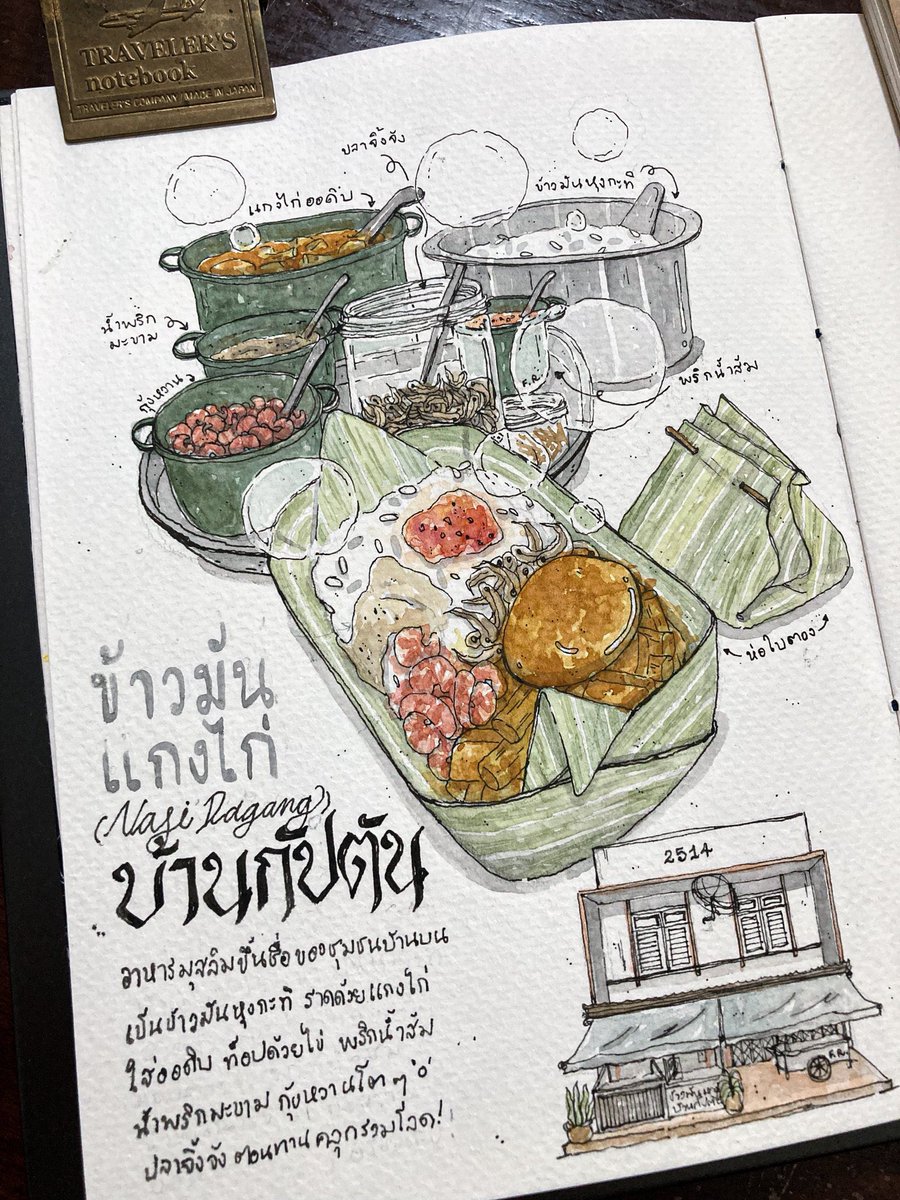 TRAVELER'S
notebook
TRAVELER'S COMPANY MADE IN JAPAN
ปลาจิ้งจัง
แกงไก่ออดิบ
ข้าวมันหุงกะทิ
น้ำพริก
มะขาม
กุ้งหวาน
พริกน้ำส้ม
ห่อใบตอง
ข้าวมัน
แกงไก่
(Nasi Dagang)
บ้านกัปตัน
อาหารมุสลิมขึ้นชื่อของชุมชนบ้านบน
เป็นข้าวมันหุงกะทิ ราดด้วยแกงไก่
ใส่ออดิบ ท็อปด้วยไข่ พริกน้ำส้ม
น้ำพริกมะขาม กุ้งหวานโตๆ
ปลาจิ้งจัง ตอนทานคลุกรวมโลด!
2514